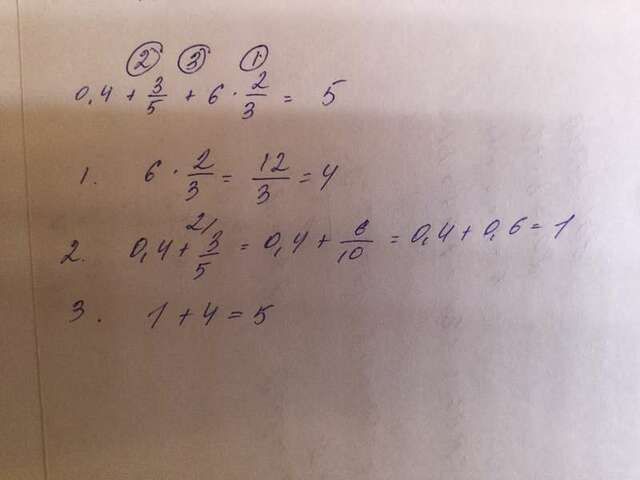 ② ③ ①
0,4 + 3/5 + 6 · 2/3 = 5
1. 6 · 2/3 = 12/3 = 4
2. 0,4 + 2/ 3/5 = 0,4 + 6/10 = 0,4 + 0,6 = 1
3. 1 + 4 = 5